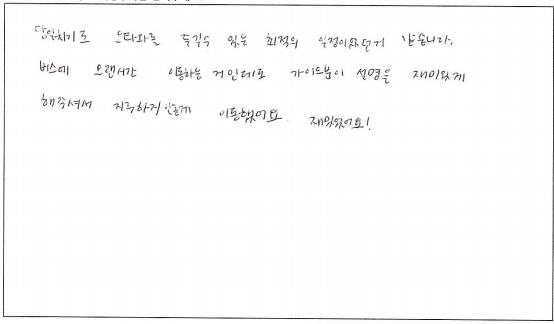 당일치기로 오타와를 즐길수 있는 최적의 일정이었던거 같습니다.
버스에 오랜시간 이동하는 거인데도 가이드분이 설명을 재미있게
해주셔서 지루하지않게 이동했어요. 재밌었어요!